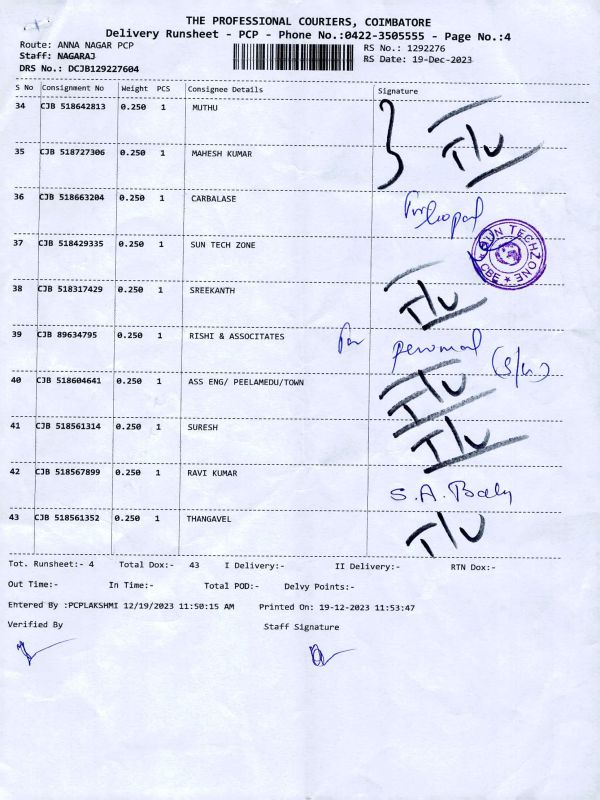 THE PROFESSIONAL COURIERS, COIMBATORE
Delivery Runsheet - PCP - Phone No.:0422-3505555 - Page No.:4
Route: ANNA NAGAR PCP RS No.: 1292276
Staff: NAGARAJ RS Date: 19-Dec-2023
DRS No.: DCJB129227604
S No Consignment No Weight PCS Consignee Details Signature
34 CJB 518642813 0.250 1 MUTHU
35 CJB 518727306 0.250 1 MAHESH KUMAR I/U
36 CJB 518663204 0.250 1 CARBALASE
37 CJB 518429335 0.250 1 SUN TECH ZONE SUN TECHZONE * CBE *
38 CJB 518317429 0.250 1 SREEKANTH I/U
39 CJB 89634795 0.250 1 RISHI & ASSOCITATES For perumal (S/w)
40 CJB 518604641 0.250 1 ASS ENG/ PEELAMEDU/TOWN I/U
41 CJB 518561314 0.250 1 SURESH I/U
42 CJB 518567899 0.250 1 RAVI KUMAR S.A.
43 CJB 518561352 0.250 1 THANGAVEL I/U
Tot. Runsheet:- 4 Total Dox:- 43 I Delivery:- II Delivery:- RTN Dox:-
Out Time:- In Time:- Total POD:- Delvy Points:-
Ehtered By :PCPLAKSHMI 12/19/2023 11:50:15 AM Printed On: 19-12-2023 11:53:47
Verified By Staff Signature